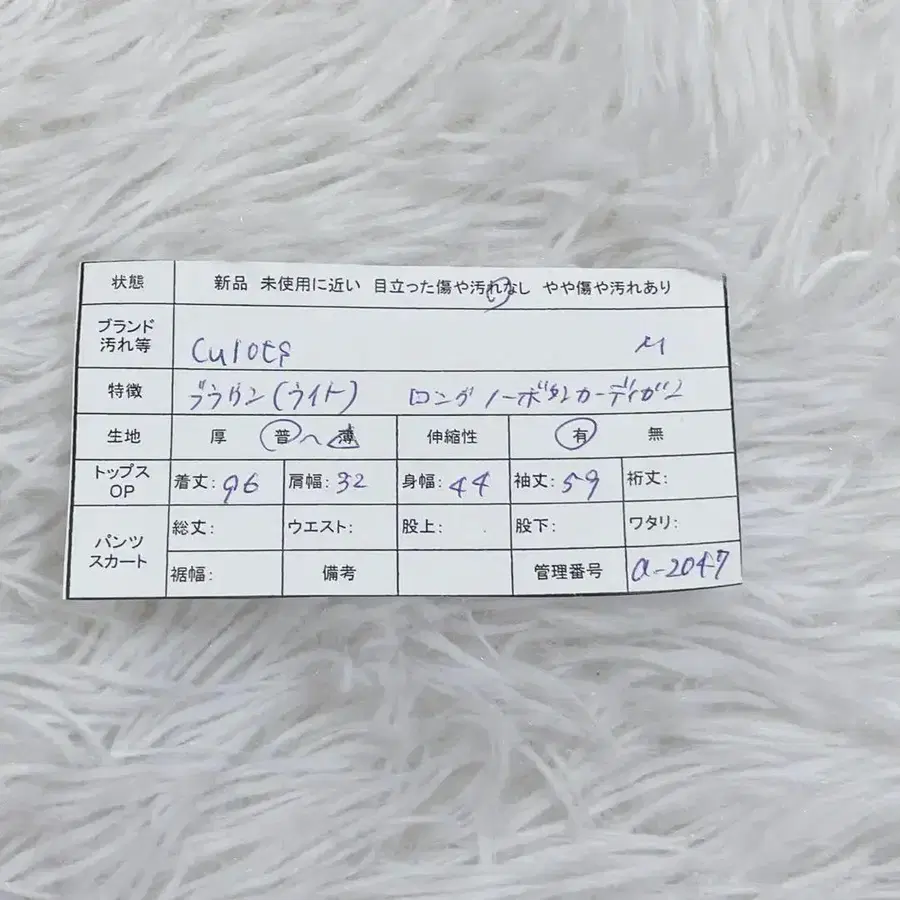 状態 新品 未使用に近い 目立った傷や汚れなし やや傷や汚れあり
ブランド
汚れ等 M
特徴 ブラウン(ライト) ロング ノーボタンカーディガン
生地 厚 普〜薄 伸縮性 有 無
トップス
OP 着丈:96 肩幅:32 身幅:44 袖丈:59 裄丈:
パンツ
スカート 総丈: ウエスト: 股上: 股下: ワタリ:
裾幅: 備考 管理番号 a-2047